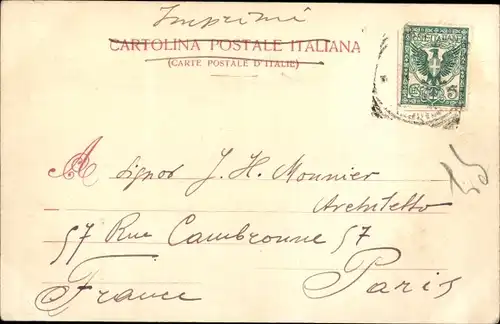 Imprimé
CARTOLINA POSTALE ITALIANA
(CARTE POSTALE D'ITALIE)
POSTE ITALIANE
CENT. 5
A Signor J. H. Mounier
Architetto
57 Rue Cambronne 57
France Paris